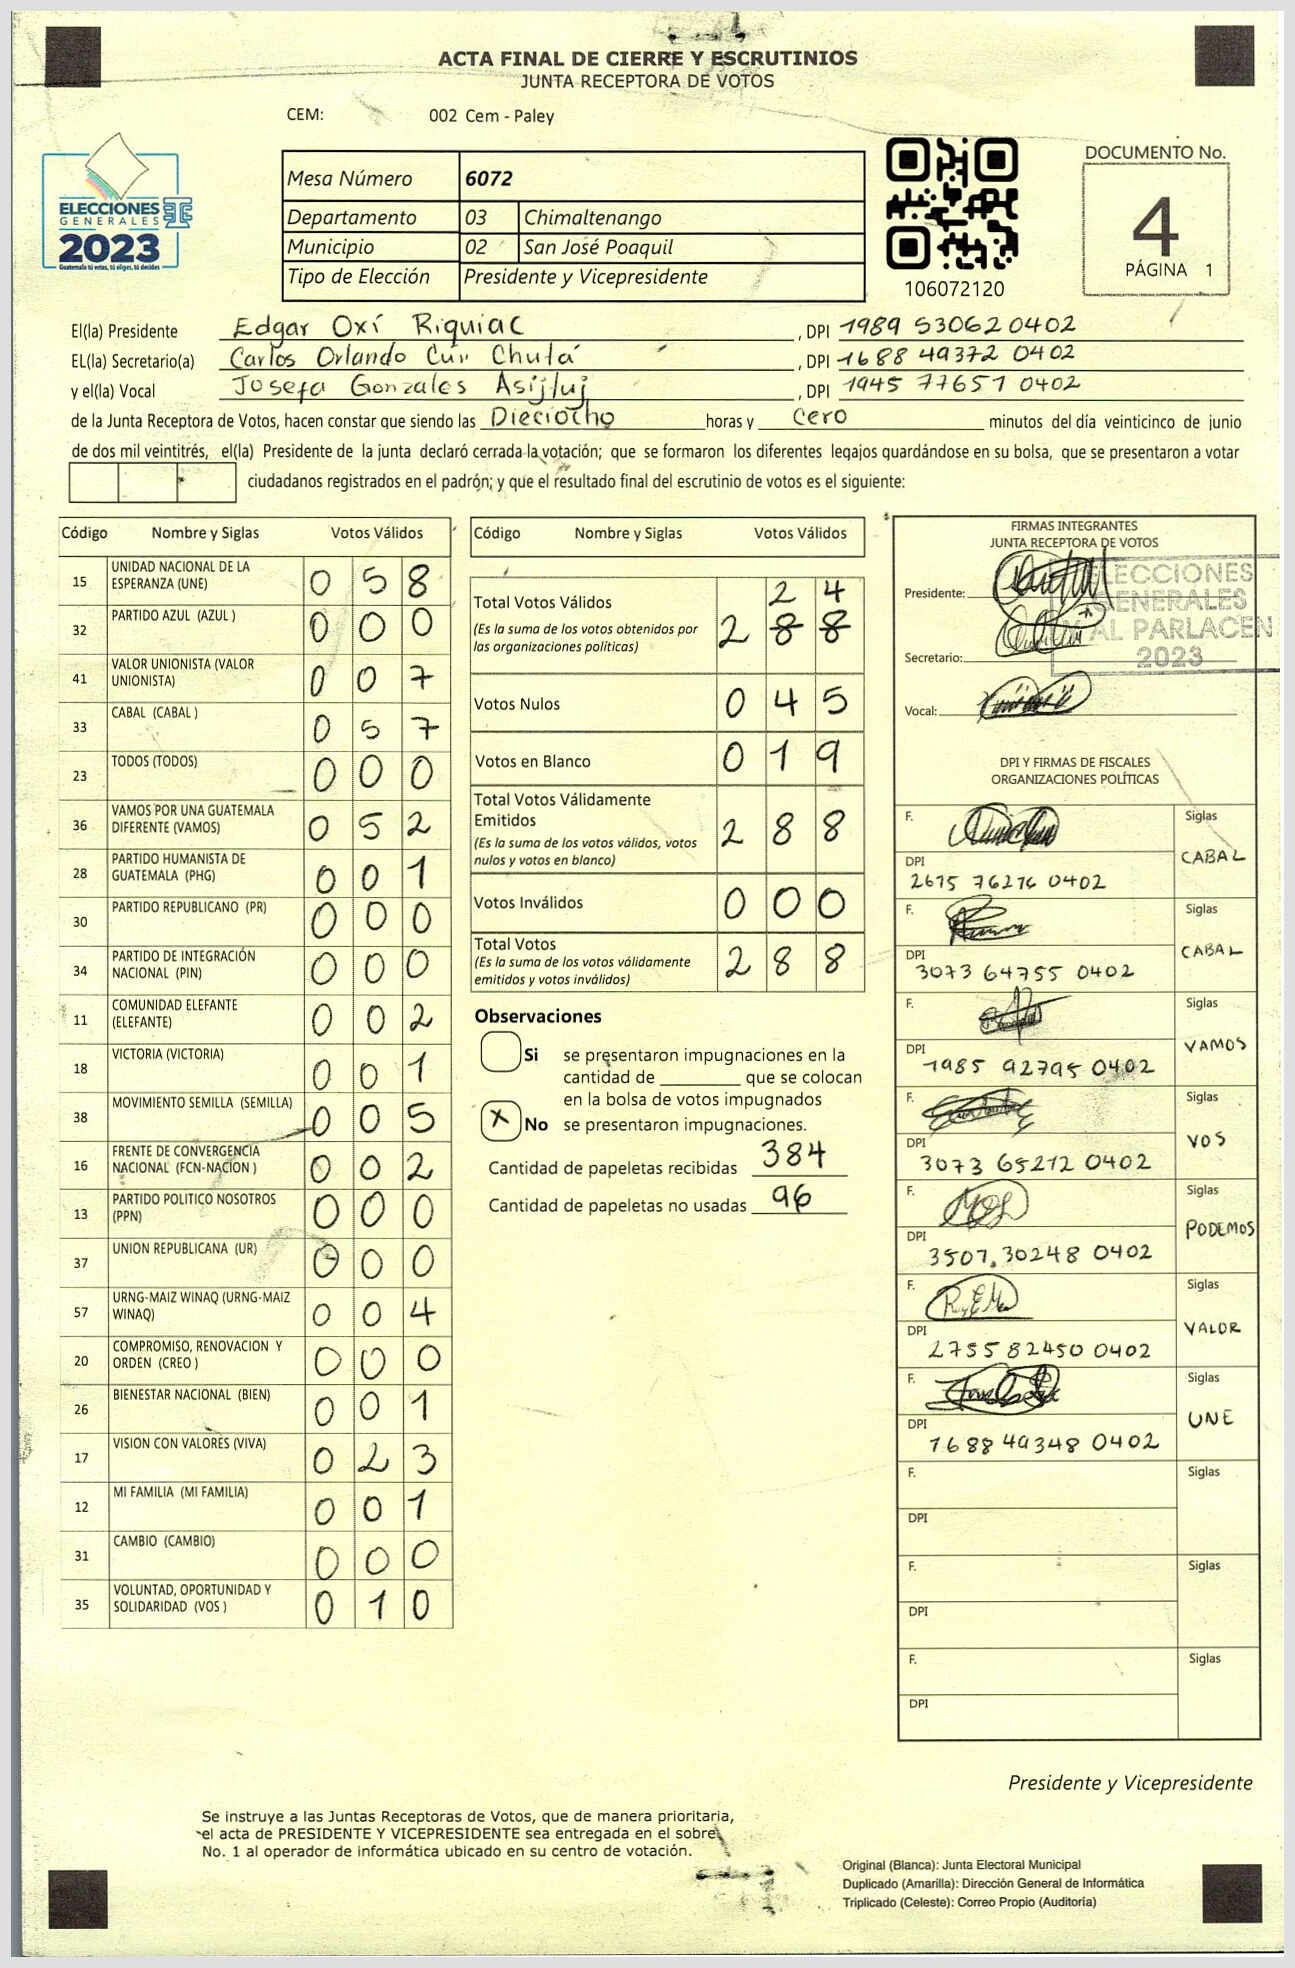 ACTA FINAL DE CIERRE Y ESCRUTINIOS
JUNTA RECEPTORA DE VOTOS
CEM: 002 Cem - Paley
ELECCIONES
GENERALES
2023
Guatemala tú votas, tú eliges, tú decides
Mesa Número 6072
Departamento 03 Chimaltenango
Municipio 02 San José Poaquil
Tipo de Elección Presidente y Vicepresidente
106072120
DOCUMENTO No.
4
PÁGINA 1
El(la) Presidente Edgar Oxí Riquiac, DPI 1989 53062 0402
EL(la) Secretario(a) Carlos Orlando Cun Chutá, DPI 1688 49372 0402
y el(la) Vocal Josefa Gonzales Asijtuj, DPI 1945 77651 0402
de la Junta Receptora de Votos, hacen constar que siendo las Dieciocho horas y Cero minutos del día veinticinco de junio
de dos mil veintitrés, el(la) Presidente de la junta declaró cerrada la votación; que se formaron los diferentes legajos guardándose en su bolsa, que se presentaron a votar
ciudadanos registrados en el padrón; y que el resultado final del escrutinio de votos es el siguiente:
Código Nombre y Siglas Votos Válidos
15 UNIDAD NACIONAL DE LA ESPERANZA (UNE) 0 5 8
32 PARTIDO AZUL (AZUL ) 0 0 0
41 VALOR UNIONISTA (VALOR UNIONISTA) 0 0 7
33 CABAL (CABAL ) 0 5 7
23 TODOS (TODOS) 0 0 0
36 VAMOS POR UNA GUATEMALA DIFERENTE (VAMOS) 0 5 2
28 PARTIDO HUMANISTA DE GUATEMALA (PHG) 0 0 1
30 PARTIDO REPUBLICANO (PR) 0 0 0
34 PARTIDO DE INTEGRACIÓN NACIONAL (PIN) 0 0 0
11 COMUNIDAD ELEFANTE (ELEFANTE) 0 0 2
18 VICTORIA (VICTORIA) 0 0 1
38 MOVIMIENTO SEMILLA (SEMILLA) 0 0 5
16 FRENTE DE CONVERGENCIA NACIONAL (FCN-NACION ) 0 0 2
13 PARTIDO POLITICO NOSOTROS (PPN) 0 0 0
37 UNION REPUBLICANA (UR) 0 0 0
57 URNG-MAIZ WINAQ (URNG-MAIZ WINAQ) 0 0 4
20 COMPROMISO, RENOVACION Y ORDEN (CREO ) 0 0 0
26 BIENESTAR NACIONAL (BIEN) 0 0 1
17 VISION CON VALORES (VIVA) 0 2 3
12 MI FAMILIA (MI FAMILIA) 0 0 1
31 CAMBIO (CAMBIO) 0 0 0
35 VOLUNTAD, OPORTUNIDAD Y SOLIDARIDAD (VOS ) 0 1 0
Código Nombre y Siglas Votos Válidos
2 4
Total Votos Válidos 2 8 8
(Es la suma de los votos obtenidos por
las organizaciones políticas)
Votos Nulos 0 4 5
Votos en Blanco 0 1 9
Total Votos Válidamente
Emitidos 2 8 8
(Es la suma de los votos válidos, votos
nulos y votos en blanco)
Votos Inválidos 0 0 0
Total Votos 2 8 8
(Es la suma de los votos válidamente
emitidos y votos inválidos)
Observaciones
Si se presentaron impugnaciones en la
cantidad de ________ que se colocan
en la bolsa de votos impugnados
X No se presentaron impugnaciones.
Cantidad de papeletas recibidas 384
Cantidad de papeletas no usadas 96
FIRMAS INTEGRANTES
JUNTA RECEPTORA DE VOTOS
Presidente:
Secretario:
Vocal:
ELECCIONES
GENERALES
Y AL PARLACEN
2023
DPI Y FIRMAS DE FISCALES
ORGANIZACIONES POLÍTICAS
F. Siglas CABAL
DPI 2675 76276 0402
F. Siglas CABAL
DPI 3073 64755 0402
F. Siglas VAMOS
DPI 1985 92795 0402
F. Siglas VOS
DPI 3073 65212 0402
F. Siglas PODEMOS
DPI 3507 30248 0402
F. Siglas VALOR
DPI 2755 82450 0402
F. Siglas UNE
DPI 1688 49348 0402
F. Siglas
DPI
F. Siglas
DPI
F. Siglas
DPI
Presidente y Vicepresidente
Se instruye a las Juntas Receptoras de Votos, que de manera prioritaria,
el acta de PRESIDENTE Y VICEPRESIDENTE sea entregada en el sobre
No. 1 al operador de informática ubicado en su centro de votación.
Original (Blanca): Junta Electoral Municipal
Duplicado (Amarilla): Dirección General de Informática
Triplicado (Celeste): Correo Propio (Auditoría)